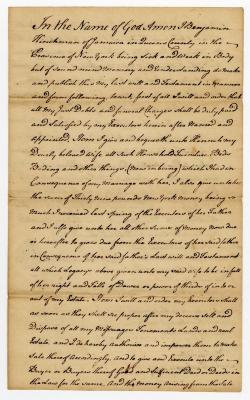 In the Name of God Amen I Benjamin
Hinchman of Jamaica in Queens County in the
Province of New York being Sick and Weak in Body
but of Sound mind Memory and Understanding do make
and publish this my last will and Testament in manner
and form following, to wit, first of all I will and order that
all my Just Debts and funeral Charges shall be duly paid
and Satisfied by my Executors herein after Named and
appointed, Item I give and bequeath unto
Dearly beloved Wife all Such Household furniture Beds
Beding and other things (now in being) which I had in
Consequence of my Marriage with her, I also give unto her
the sum of Thirty Nine pounds New York Money being so
much I received last Spring of the Executors of her Father
and I also give unto her all other Sums of Money now due
or hereafter to grow due from the Executors of her said father
in Consequence of her said father's Last will and Testament
all which Legacys above given unto my said wife to be in full
of her right and Title of Dower or power of thirds of in to or
out of my Estate. Item I will and order my Executors shall
as soon as they shall See proper after my decease sell and
Dispose of all my Messuages Tenements Lands and real
Estate, and I do hereby authorize and impower them to make
Sale thereof accordingly, and to give and Execute unto the
Buyer or Buyers thereof Good and Sufficient Deed or Deeds in
the Law for the same, And the money arising from the Sale